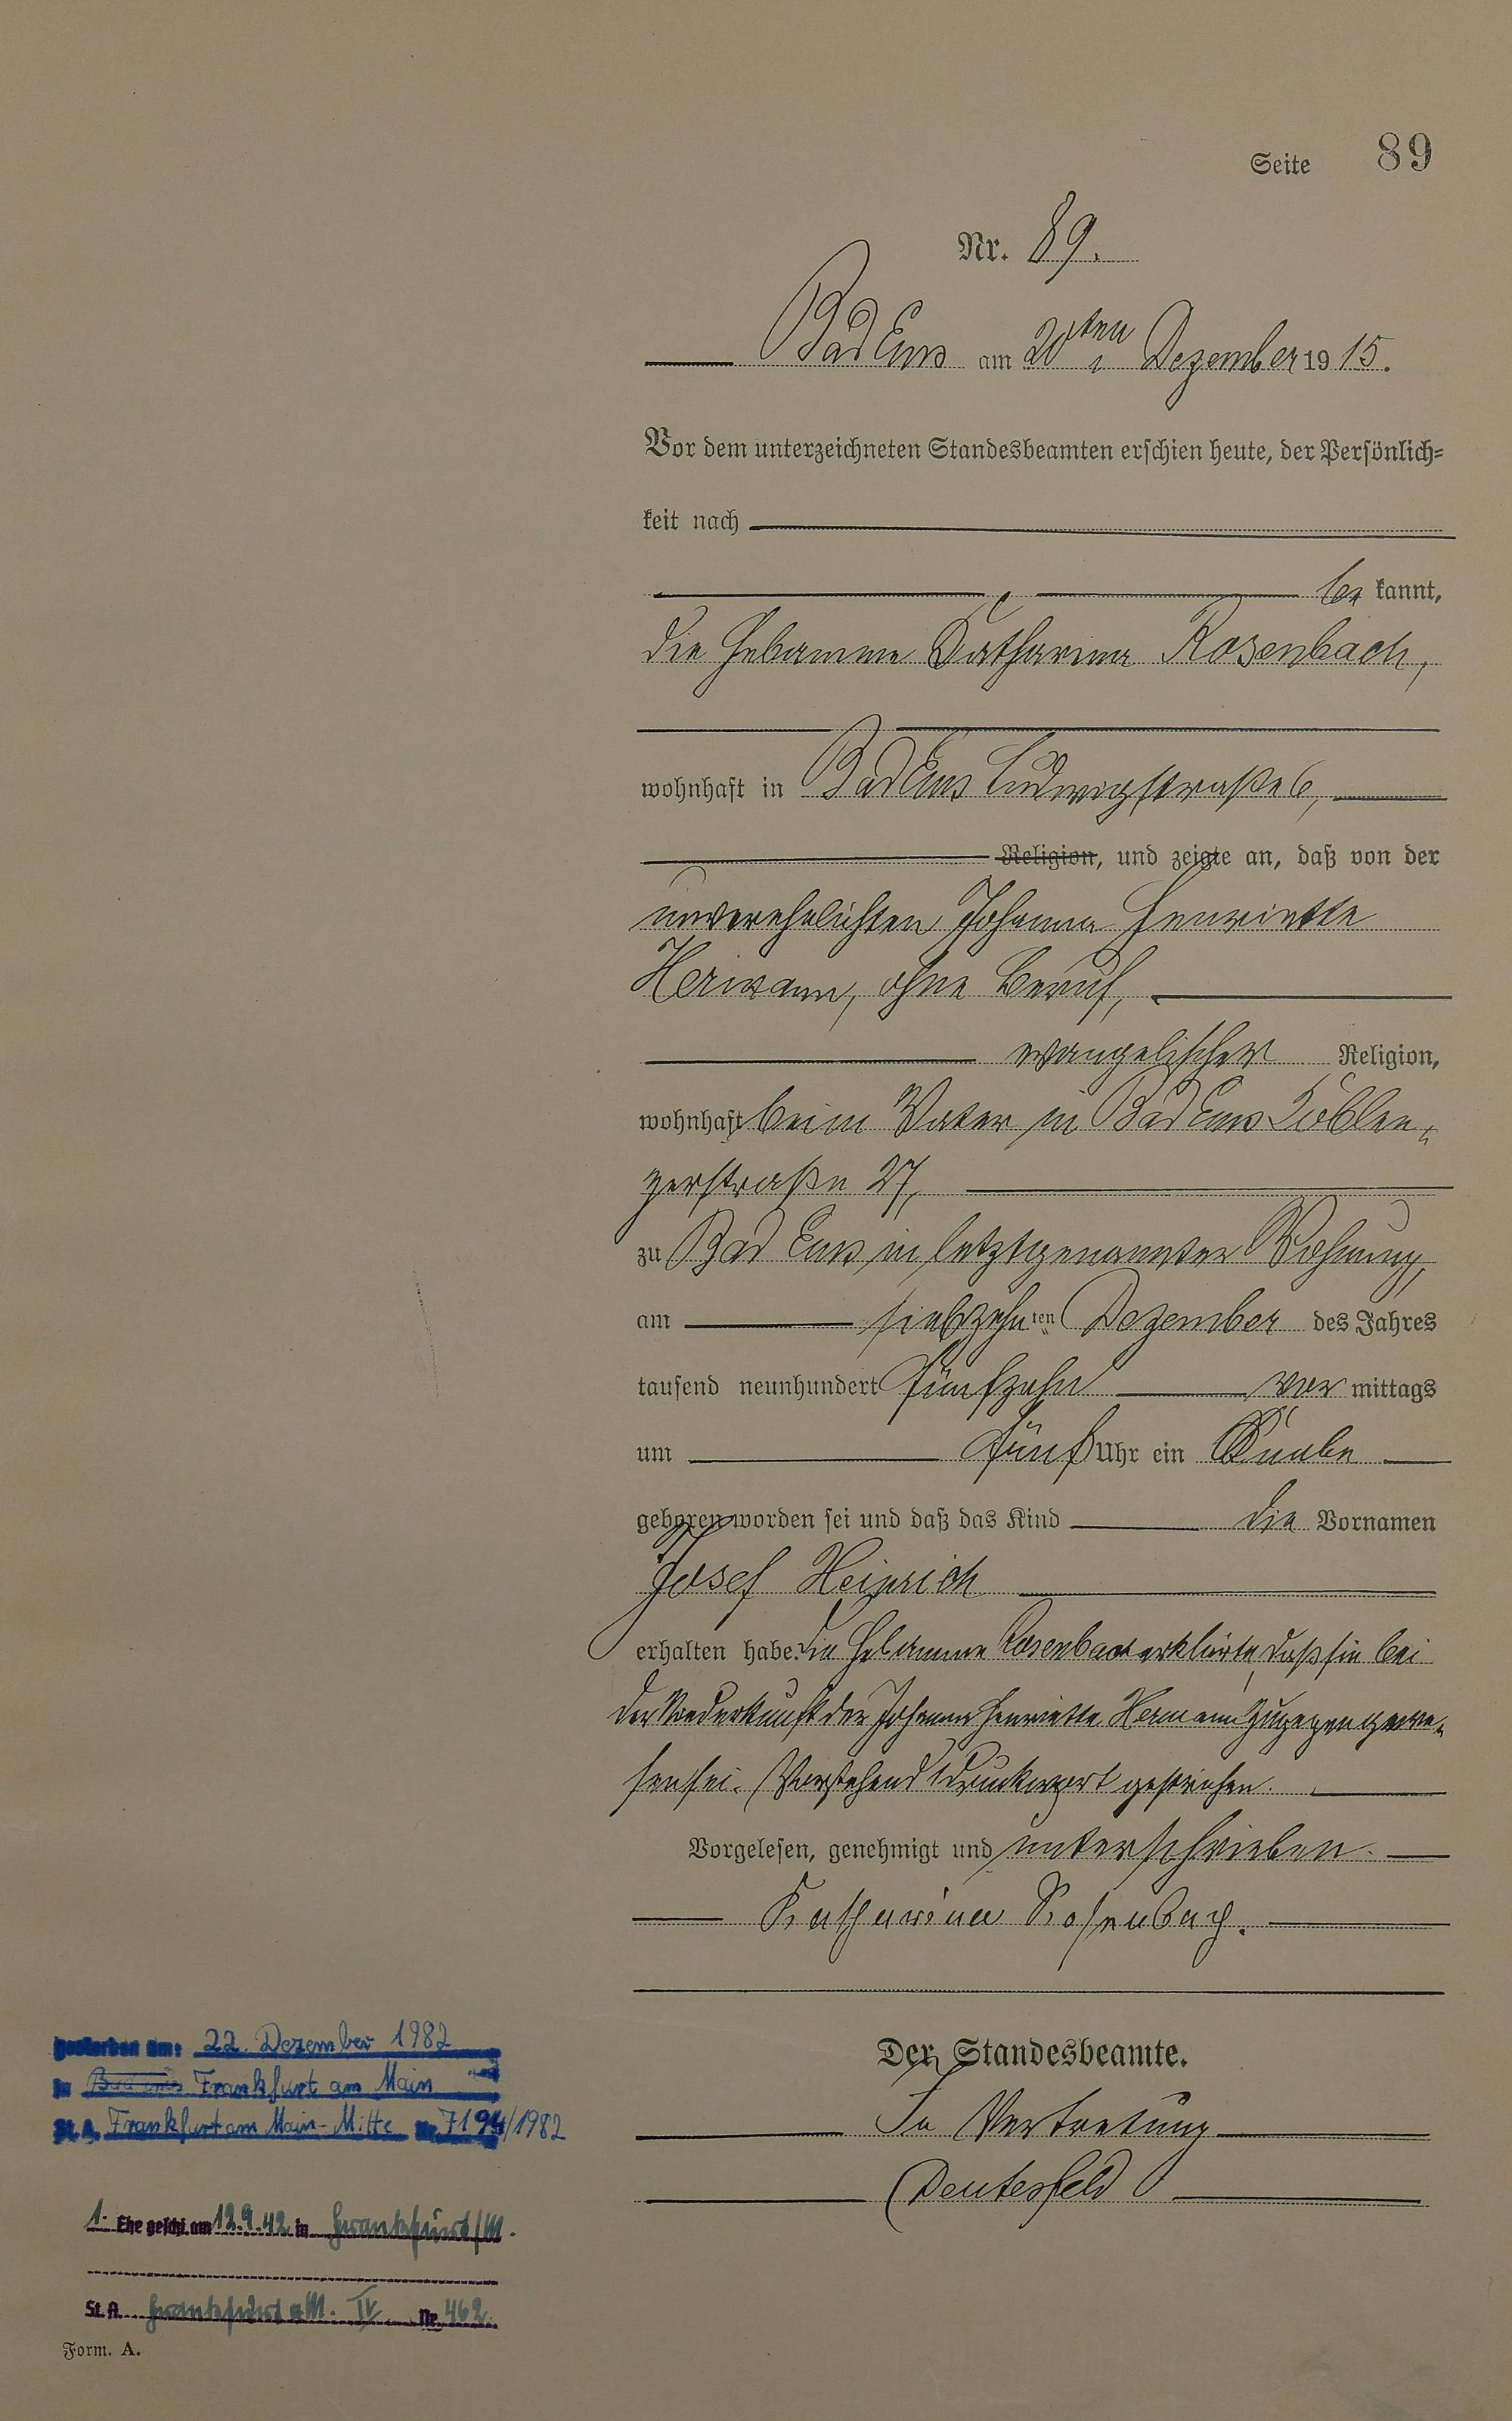 Seite 89
Nr. 89.
Bad Ems am 20ten Dezember 1915.
Vor dem unterzeichneten Standesbeamten erschien heute, der Persönlich=
keit nach
be kannt,
die Hebamme Katharina Rosenbach,
wohnhaft in Bad Ems Ludwigstraße 6,
Religion, und zeigte an, daß von der
unverehelichten Johanna Henriette
Hermann, ohne Beruf,
evangelischer Religion,
wohnhaft beim Vater in Bad Ems Coblen-
zerstraße 27,
zu Bad Ems in letztgenannter Wohnung,
am siebzehn ten Dezember des Jahres
tausend neunhundert fünfzehn vor mittags
um fünf Uhr ein Knabe
geboren worden sei und daß das Kind die Vornamen
Josef Heinrich
erhalten habe. Die Hebamme Rosenbach erklärte, daß sie bei
der Niederkunft der Johanna Henriette Hermann zugegen gewe-
sen sei. Vorstehend 1 Druckwort gestrichen.
Vorgelesen, genehmigt und unterschrieben.
Katharina Rosenbach.
Der Standesbeamte.
In Vertretung
Deutesfeld
gestorben am: 22. Dezember 1982
in Bad Ems Frankfurt am Main
St. A. Frankfurt am Main-Mitte Nr. 7194/1982
1. Ehe geschl. am 12.9.42 in Frankfurt/M.
St. A. Frankfurt a/M. IV Nr. 462
Form. A.